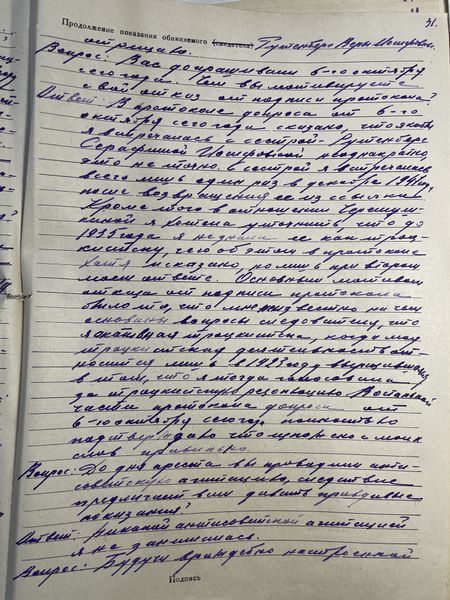 31.
Продолжение показания обвиняемого (свидетеля) Рутенберг Веры Иосифовны.
отрицаю.
Вопрос: Вас допрашивали 6-го октября
сего года. Чем вы мотивируете
свой отказ от подписи протокола?
Ответ: В протоколе допроса от 6-го
октября сего года сказано, что якобы
я встречалась с сестрой - Рутенберг
Серафимой Иосифовной неоднократно,
это не точно. С сестрой я встречалась
всего лишь один раз в декабре 1941 года,
после возвращения ее из ссылки.
Кроме того в отношении
я хотела уточнить, что до
1935 года я не знала ее как троц-
кистку, чего об этом в протоколе
хотя и сказано, но лишь при втором
моем ответе. Основным мотивом
отказа от подписи протокола
было то, что мне неизвестно на чем
основаны вопросы следователя, что
я активная троцкистка, когда моя
троцкистская деятельность от-
носится лишь к 1923 году выразившаяся
в том, что я тогда голосовала
за троцкистскую резолюцию. В остальной
части протокола допроса от
6-го октября сего года полностью
подтверждаю что изложено с моих
слов правильно.
Вопрос: До дня ареста вы проводили анти-
советскую агитацию, следствие
предлагает вам давать правдивые
показания?
Ответ: Никакой антисоветской агитацией
я не занималась.
Вопрос: Будучи враждебно настроенной
Подпись